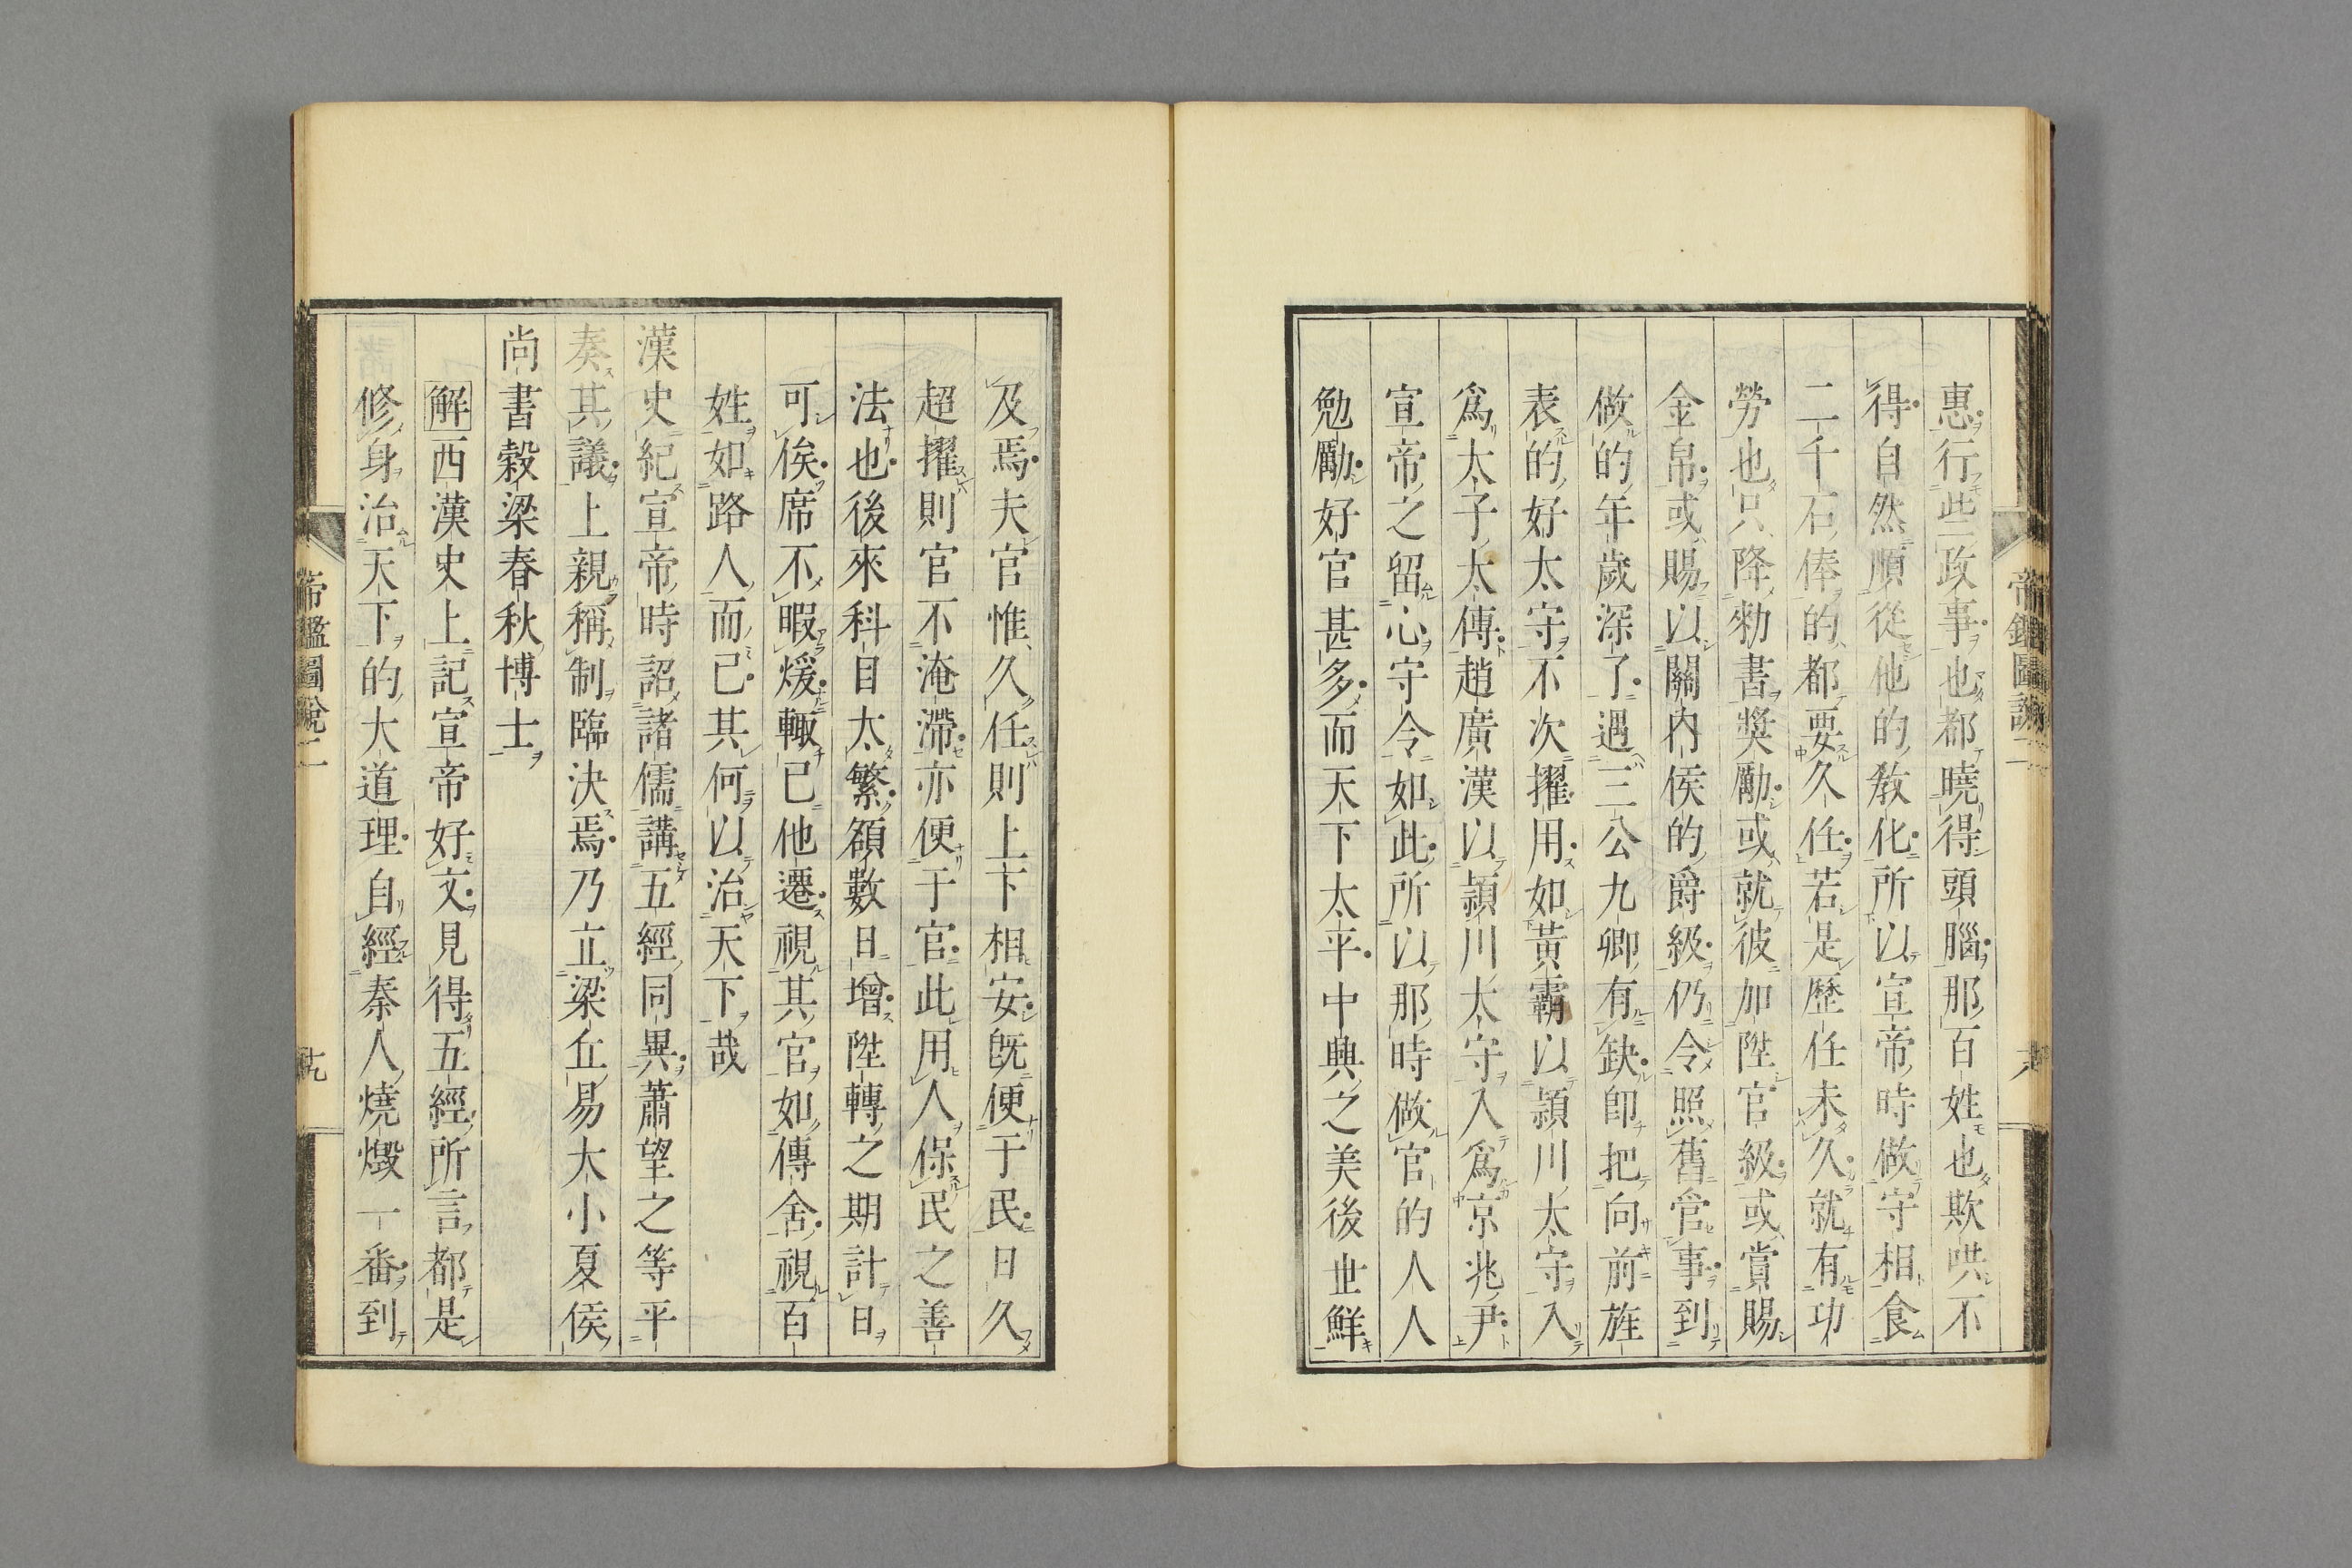 惠行些政事也都曉得頭腦那百姓也欺哄不
得自然順從他的敎化所以宣帝時做守相食
二千石俸的都要久任若是歷任未久就有功
勞也只降勅書奬勵或就彼加陞官級或賞賜
金帛或賜以關內侯的爵級仍令照舊管事到
做的年歲深了遇三公九卿有缺卽把向前旌
表的好太守不次擢用如黃霸以潁川太守入
爲太子太傅趙廣漢以潁川太守入爲京兆尹
宣帝之留心守令如此所以那時做官的人人
勉勵好官甚多而天下太平中興之美後世鮮
及焉夫官惟久任則上下相安旣便于民日久
超擢則官不淹滯亦便于官此用人保民之善
法也後來科目太繁額數日增陞轉之期計日
可俟席不暇煖輙已他遷視其官如傳舍視百
姓如路人而已其何以治天下哉
漢史紀宣帝時詔諸儒講五經同異蕭望之等平
奏其議上親稱制臨決焉乃立梁丘易大小夏侯
尚書穀梁春秋博士
解西漢史上記宣帝好文見得五經所言都是
修身治天下的大道理自經秦人燒燬一番到
帝鑑圖說二